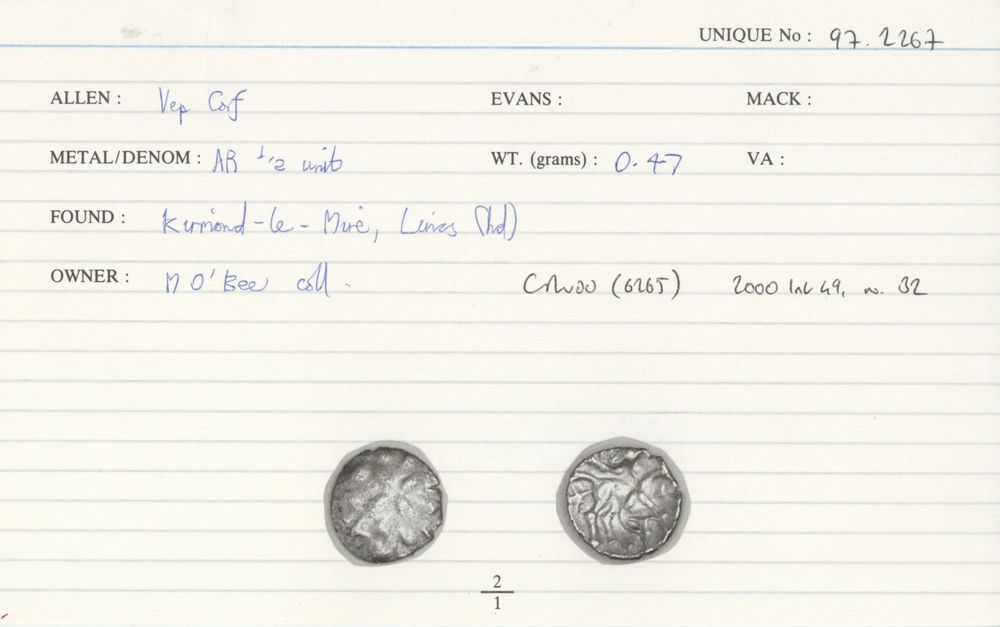 UNIQUE No : 97.2267
ALLEN : Vep Corf EVANS : MACK :
METAL/DENOM : AR 1/2 unit WT. (grams) : 0.47 VA :
FOUND : Kirmond-le-Mire, Lincs (hd)
OWNER : M O'Bee coll. (6265) 2000 49, no. 32
2
1